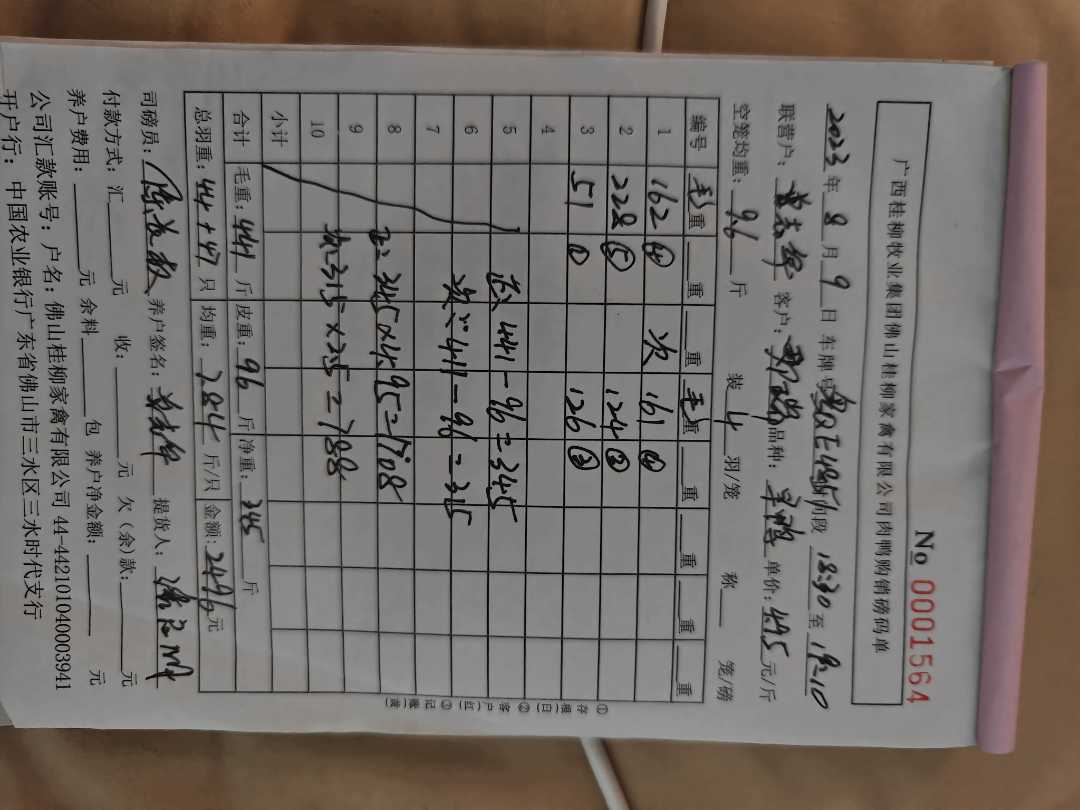 No 0001564
广西桂柳牧业集团佛山桂柳家禽有限公司肉鸭购销磅码单
2023年8月9日 车牌号 E 时间段 18:30至19:10
联营户: 客户: 品种: 单价:4.95元/斤
空笼均重:9.6斤 装4羽/笼 称 笼/磅
编号 毛重 重 重 毛重 重 重 重 重
1 162 ④ 次 161 ④
2 228 ⑤ 124 ③
3 51 ① 126 ③
4
5 正: 441-96=345
6 次: 411-96=315
7
8 正: 345×4.95=1708
9 次: 315×2.5=788
10
小计
合计 毛重:441斤 皮重:96斤 净重:345斤
总羽重:44+47只 均重:7.84斤/只 金额:2496元
司磅员: 养户签名: 提货人:
付款方式:汇 元 收: 元 欠(余)款: 元
养户费用: 元 余料 包 养户净金额: 元
公司汇款账号:户名:佛山桂柳家禽有限公司 44-442101040003941
开户行:中国农业银行广东省佛山市三水区三水时代支行
①存根(白) ②客户(红) ③记账(黄)